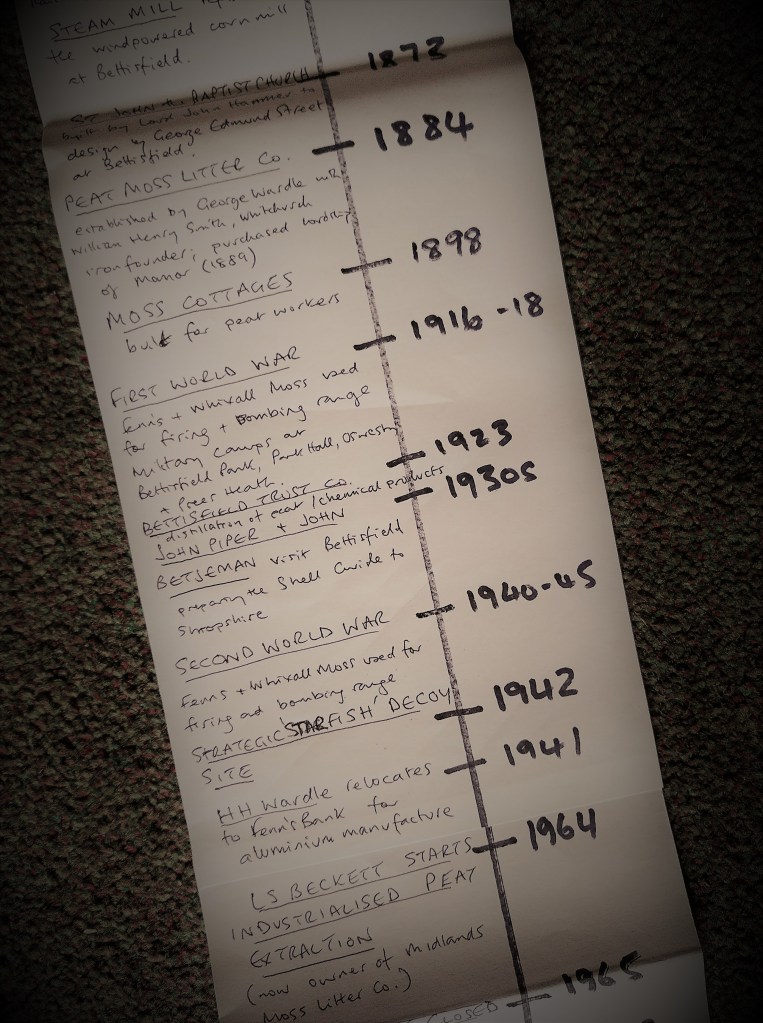 STEAM MILL
the windpowered corn mill
at Bettisfield.
1873
ST. JOHN the BAPTIST CHURCH
built by Lord John Hanmer to
design by George Edmund Street
at Bettisfield.
1884
PEAT MOSS LITTER Co.
established by George Wardle with
William Henry Smith, Whitchurch
ironfounder; purchased Lordship
of Manor (1889)
1898
MOSS COTTAGES
built for peat workers
1916-18
FIRST WORLD WAR
Fenns + Whixall Moss used
for firing + bombing range
Military camps at
Bettisfield Park, Park Hall, Oswestry
+ Prees Heath.
1923
BETTISFIELD TRUST CO.
distillation of peat / chemical products
1930s
JOHN PIPER + JOHN
BETJEMAN visit Bettisfield
preparing the Shell Guide to
Shropshire
1940-45
SECOND WORLD WAR
Fenns + Whixall Moss used for
firing and bombing range
1942
STRATEGIC 'STARFISH' DECOY
SITE
1941
HH Wardle relocates
to Fenn's Bank for
aluminium manufacture
1964
LS BECKETT STARTS
INDUSTRIALISED PEAT
EXTRACTION
(now owner of Midlands
Moss Litter Co.)
1965
CLOSED